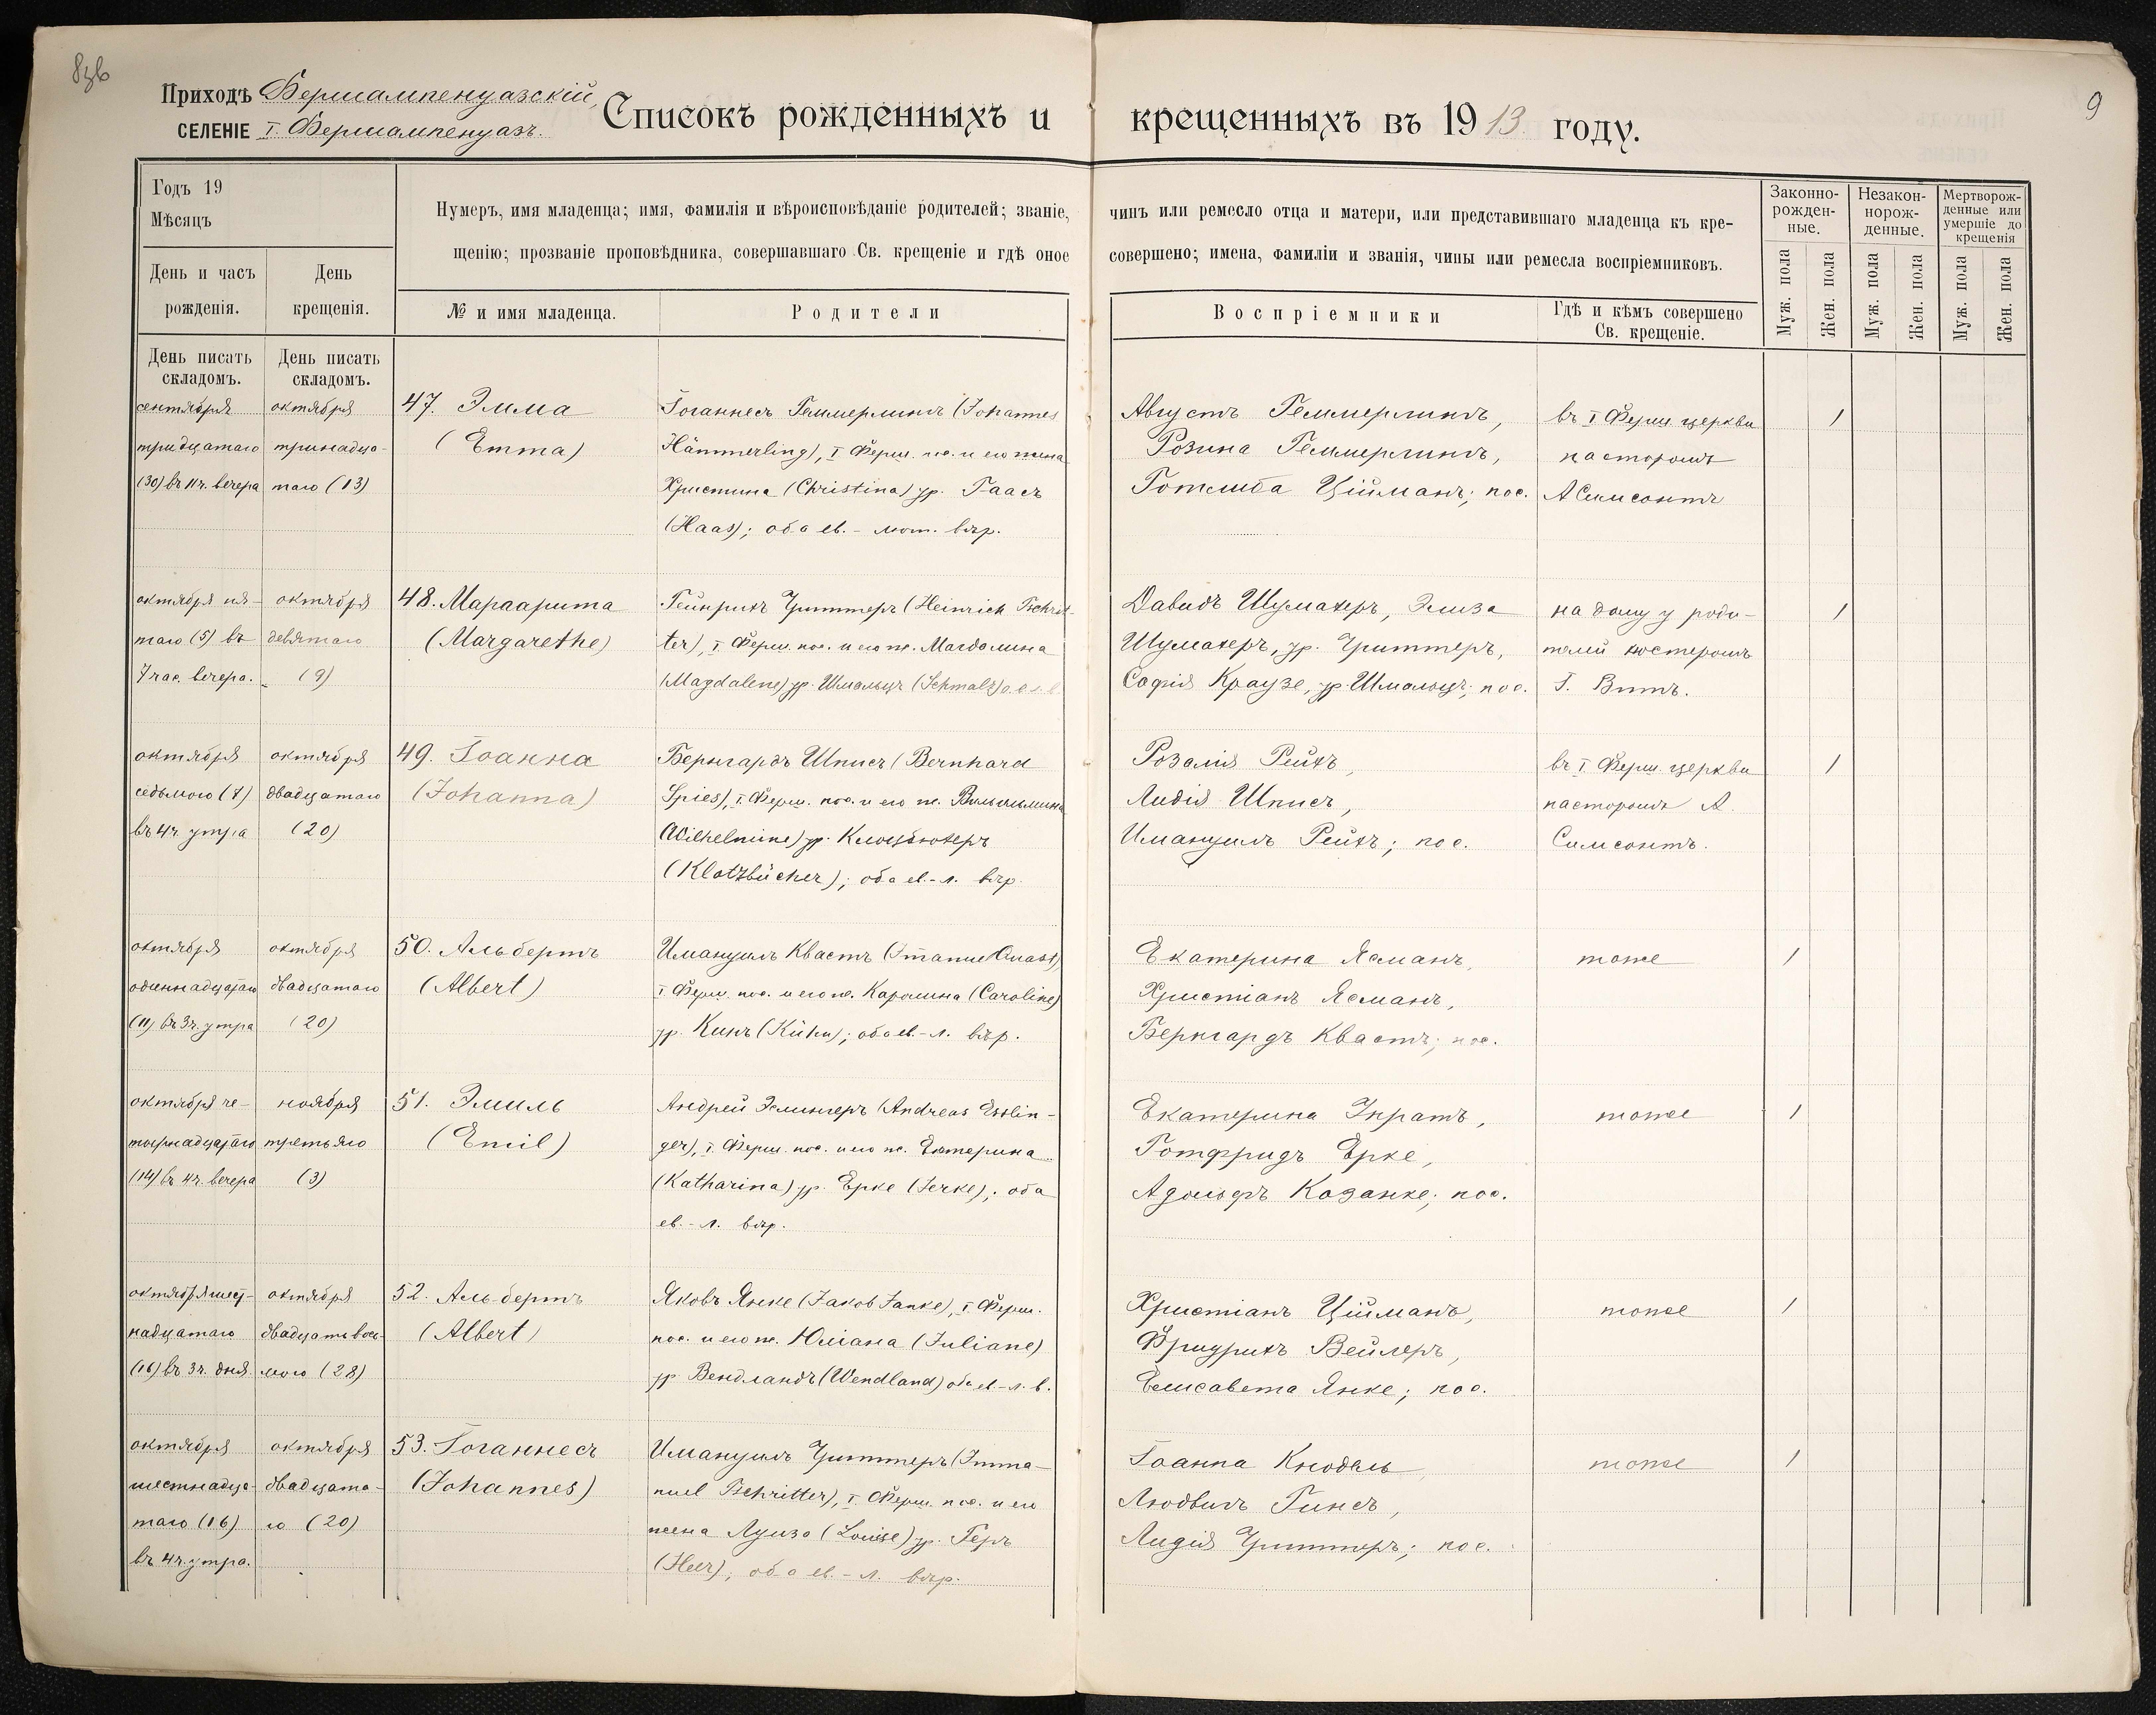 8зв
9
Приходъ Фершампенуазскій,
СЕЛЕНІЕ I. Фершампенуазъ.
Списокъ рожденныхъ и крещенныхъ въ 1913 году.
Годъ 19
Мѣсяцъ
День и часъ рожденія.
День крещенія.
Нумеръ, имя младенца; имя, фамилія и вѣроисповѣданіе родителей; званіе, чинъ или ремесло отца и матери, или представившаго младенца къ кре-
щенію; прозваніе проповѣдника, совершавшаго Св. крещеніе и гдѣ оное совершено; имена, фамиліи и званія, чины или ремесла воспріемниковъ.
№ и имя младенца.
Родители
Воспріемники
Гдѣ и кѣмъ совершено
Св. крещеніе.
Законно-
рожден-
ные.
Незакон-
норож-
денные.
Мертворож-
денные или
умершіе до
крещенія
Муж. пола
Жен. пола
Муж. пола
Жен. пола
Муж. пола
Жен. пола
День писать
складомъ.
День писать
складомъ.
сентября
тридцатаго
(30) въ 11 ч. вечера
октября
тринадца-
таго (13)
47. Эмма
(Emma)
Іоганнесъ Геммерлингъ (Johannes
Hämmerling), I Ферш. пос. и его жена
Христина (Christina) ур. Гаасъ
(Haas); оба ев.-лют. вѣр.
Августъ Геммерлингъ,
Розина Геммерлингъ,
Готлиба Ціймань; пос.
въ I Ферш. церкви
пасторомъ
А Симсонъ
1
октября пя-
таго (5) въ
7 час. вечера.
октября
девятаго
(9)
48. Мараарита
(Margarethe)
Гейнрихъ Чриттеръ (Heinrich Tschrit-
ter), I Ферш. пос. и его ж. Магдалина
(Magdalene) ур. Шмальцъ (Schmalz) о. е. л. в.
Давидъ Шумахеръ, Элиза
Шумахеръ, ур. Чриттеръ,
Софія Краузе, ур. Шмальцъ; пос.
на дому у роди-
телей кюстеромъ
Г. Виттъ.
1
октября
седьмого (7)
въ 4 ч. утра
октября
двадцатаго
(20)
49. Іоанна
(Johanna)
Бернгардъ Шписъ (Bernhard
Spies), I. Ферш. пос. и его ж. Вильгельмина
(Wilhelmine) ур. Клоцбюхеръ
(Klotzbücher); оба ев.-л. вѣр.
Розалія Рейхъ,
Лидія Шписъ,
Имануилъ Рейхъ; пос.
въ I Ферш. церкви
пасторомъ А.
Симсонъ.
1
октября
одиннадцатаго
(11) въ 3 ч. утра
октября
двадцатаго
(20)
50. Альбертъ
(Albert)
Имануилъ Квастъ (Imanuel Quast),
I Ферш. пос. и его ж. Каролина (Caroline)
ур. Кинъ (Kühn); оба ев.-л. вѣр.
Екатерина Ясманъ,
Христіанъ Ясманъ,
Бернгардъ Квастъ; пос.
тоже
1
октября че-
тырнадцатаго
(14) въ 4 ч. вечера
ноября
третьяго
(3)
51. Эмиль
(Emil)
Андрей Эслингеръ (Andreas Esslin-
ger), I. Ферш. пос. и его ж. Екатерина
(Katharina) ур. Ерке (Jerke); оба
ев.-л. вѣр.
Екатерина Экратъ,
Готфридъ Ерке,
Адольфъ Казанке; пос.
тоже
1
октября шест-
надцатаго
(16) въ 3 ч. дня
октября
двадцать вось-
мого (28)
52. Альбертъ
(Albert)
Яковъ Янке (Jakob Janke), I Ферш.
пос. и его ж. Юліана (Juliane)
ур. Вендландъ (Wendland) оба ев.-л. в.
Христіанъ Ційманъ,
Фридрихъ Вейлеръ,
Елисавета Янке; пос.
тоже
1
октября
шестнадца-
таго (16)
въ 4 ч. утра.
октября
двадцата-
го (20)
53. Іоганнесъ
(Johannes)
Имануилъ Чриттеръ (Imma-
nuel Tschritter), I. Ферш. пос. и его
жена Луиза (Louise) ур. Геръ
(Heer); оба ев.-л. вѣр.
Іоанна Кнодель,
Людвигъ Гинсъ,
Лидія Чриттеръ; пос.
тоже
1